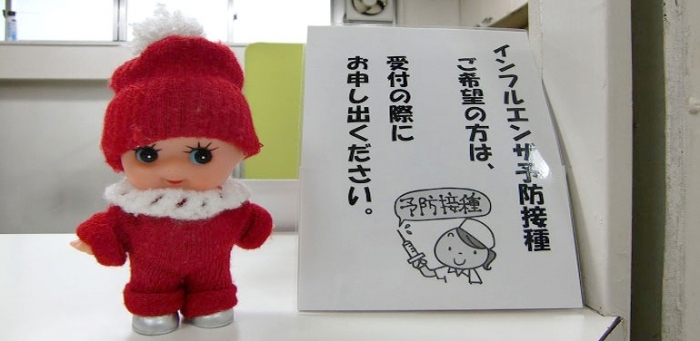 インフルエンザ予防接種
ご希望の方は、
受付の際に
お申し出ください。
予防接種